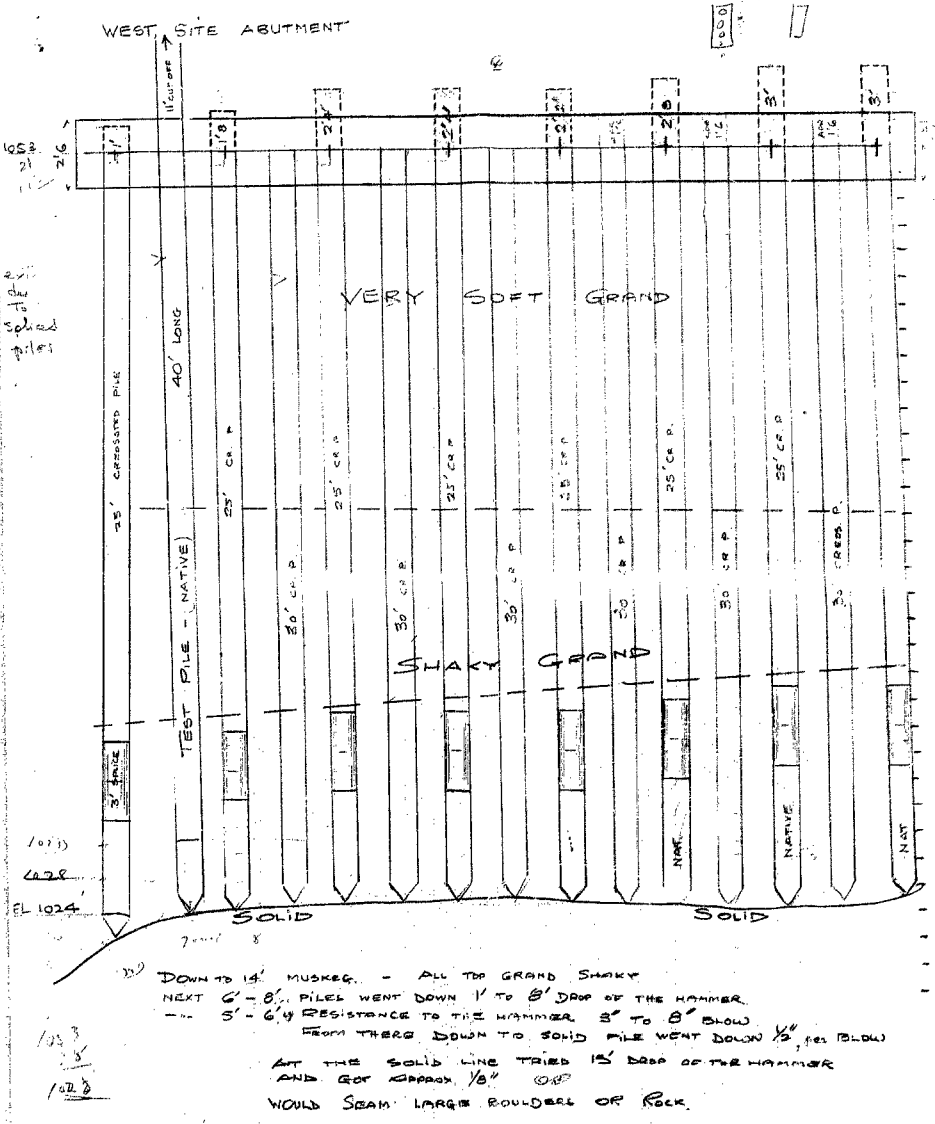 WEST SITE ABUTMENT
11' CUT OFF
1'
1'8
2'4
2'8
3'
3'
ADD 1'6
2'6
1053
21
due
To
spliced
piles
VERY SOFT GRAND
40' LONG
25' CREOSOTED PILE
25' CR. P
25' CR P
25' CR P
25' CR P
25' CR P.
25' CR P.
TEST PILE - (NATIVE)
30' CR. P
30' CR. P
30' CR P
30' CR P
30' CR P
30' CREOS. P.
SHAKY GRAND
3' SPLICE
NAT.
NATIVE
NAT
1028
EL 1024'
SOLID
SOLID
DOWN TO 14' MUSKEG. - ALL TOP GRAND SHAKY
NEXT 6' - 8' PILES WENT DOWN 1' TO 8' DROP OF THE HAMMER
5' - 6' RESISTANCE TO THE HAMMER 3" TO 8" BLOW
FROM THERE DOWN TO SOLID PILE WENT DOWN 1/2" per BLOW
AT THE SOLID LINE TRIED 15' DROP OF THE HAMMER
AND GOT APPROX 1/8" OF
WOULD SEAM LARGE BOULDERS OR ROCK.